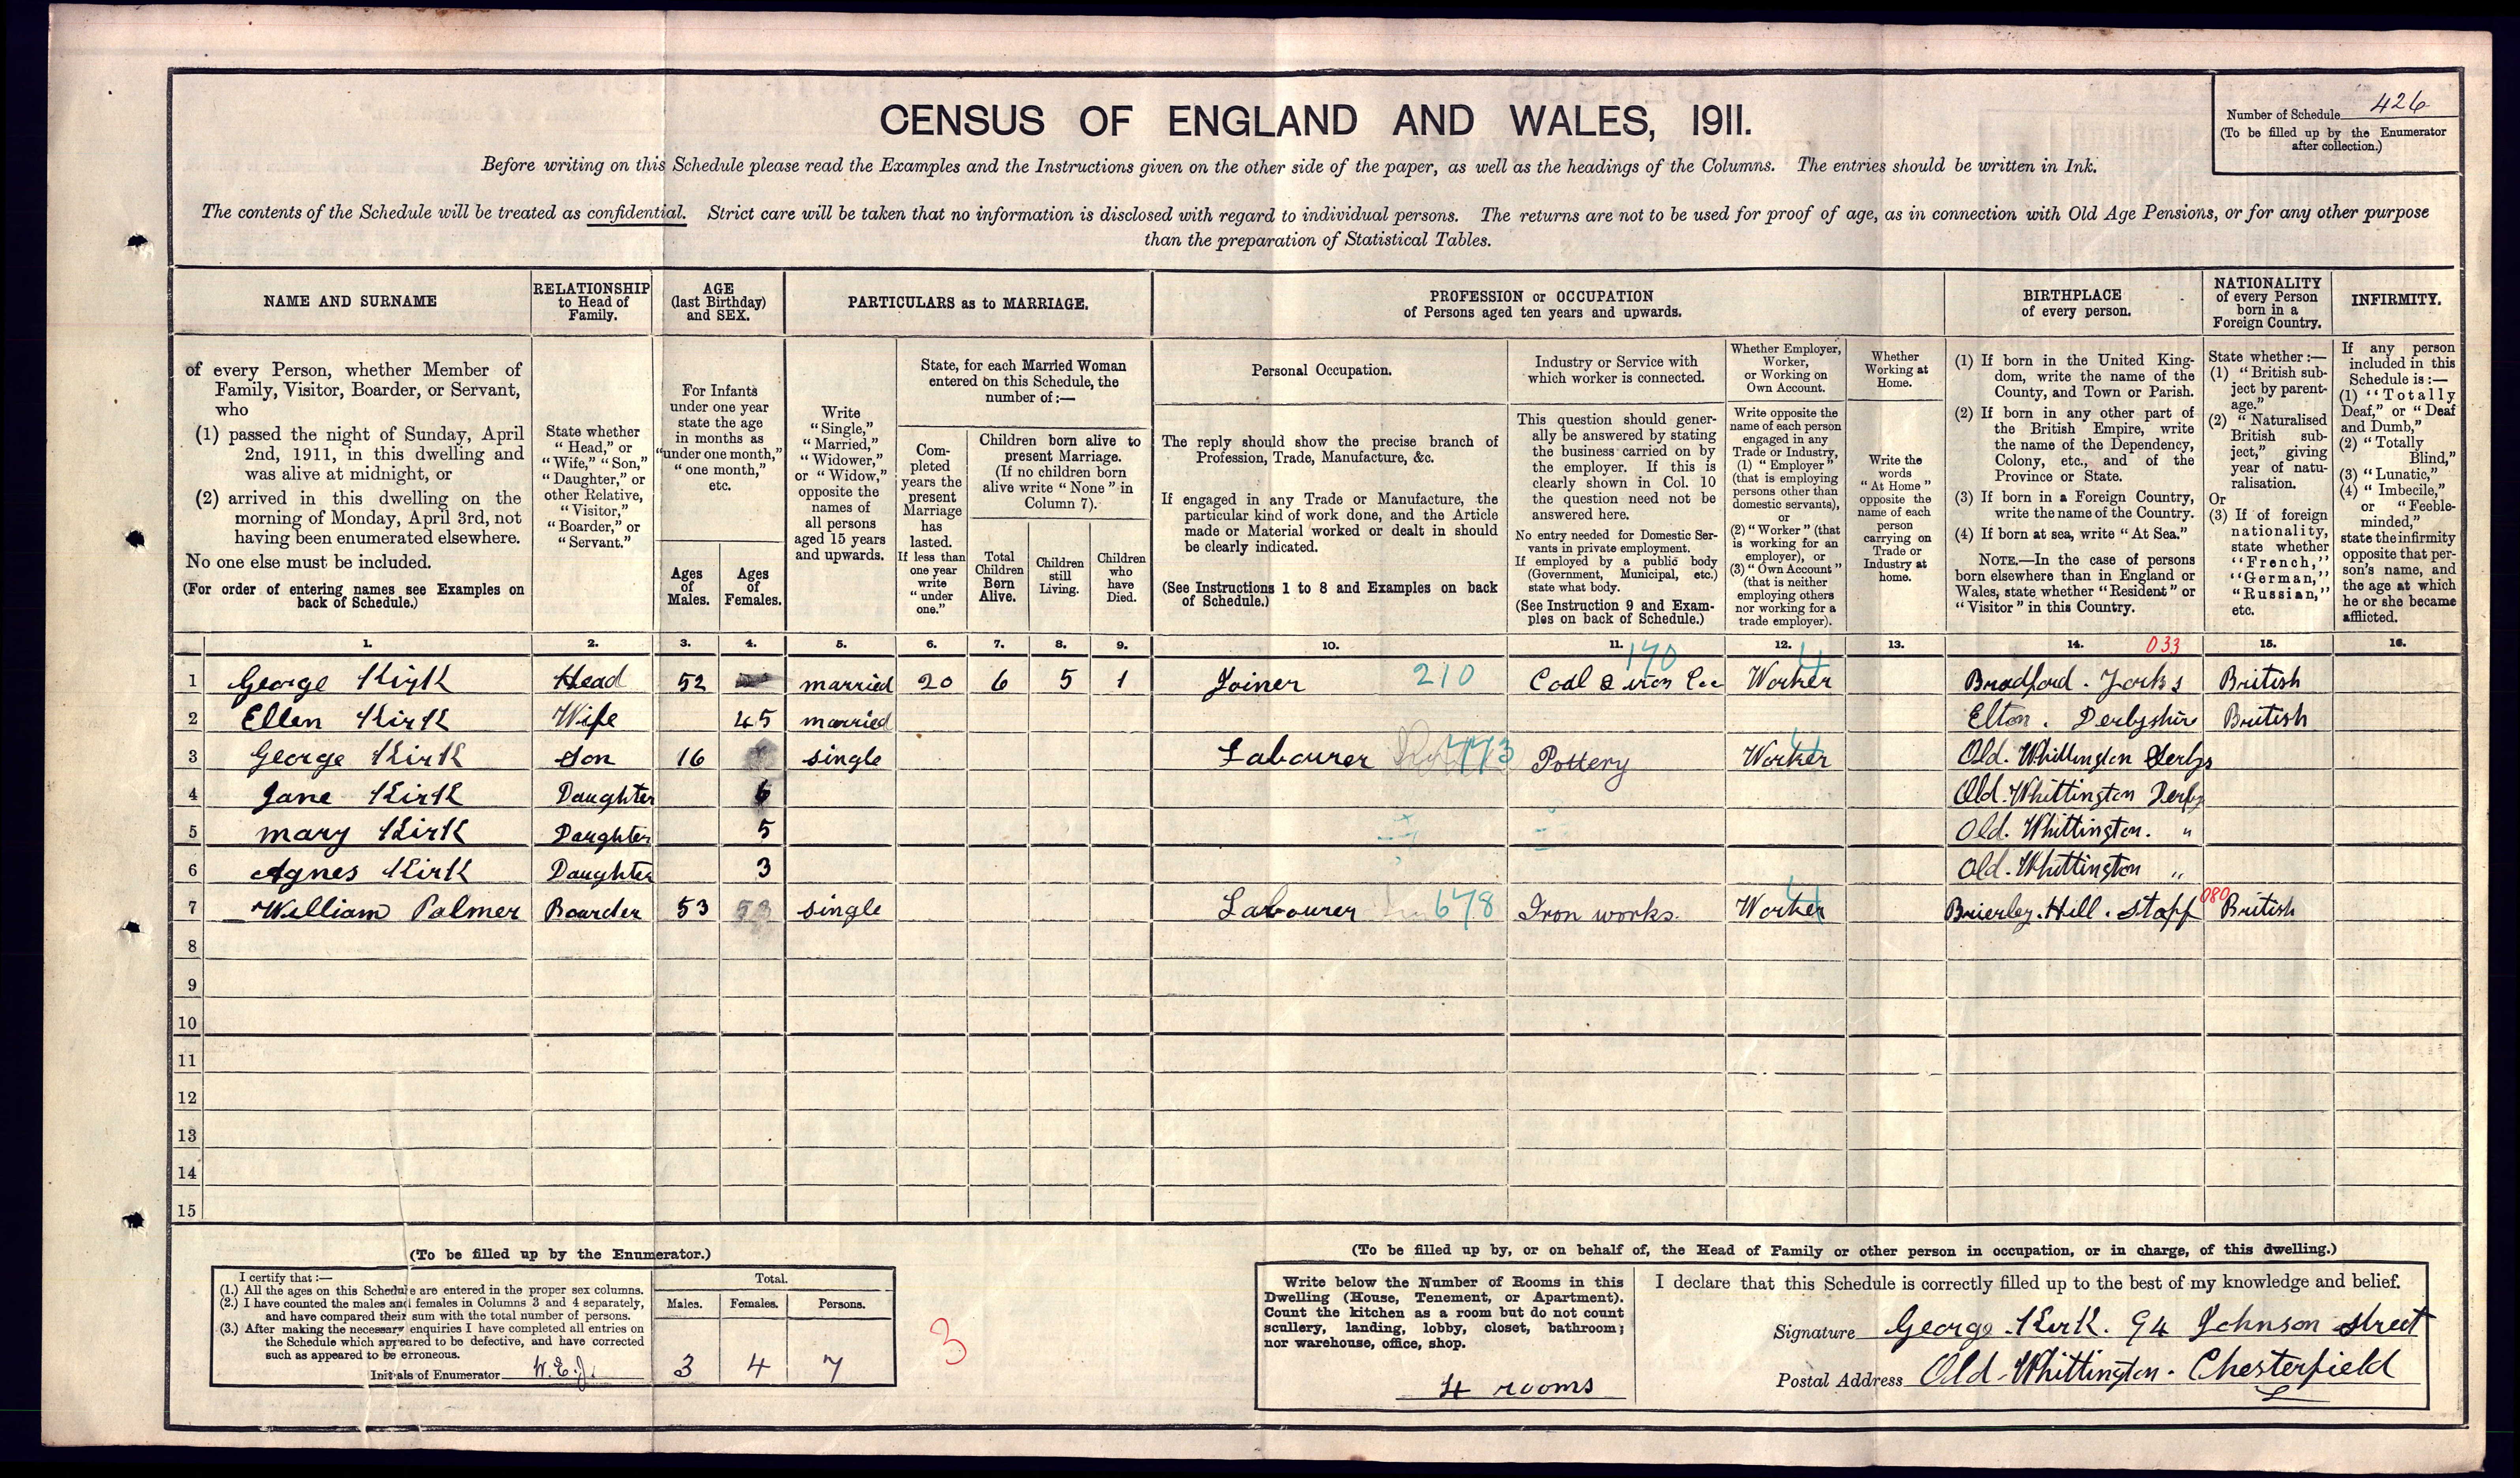 CENSUS OF ENGLAND AND WALES, 1911.
Number of Schedule 426
(To be filled up by the Enumerator
after collection.)
Before writing on this Schedule please read the Examples and the Instructions given on the other side of the paper, as well as the headings of the Columns. The entries should be written in Ink.
The contents of the Schedule will be treated as confidential. Strict care will be taken that no information is disclosed with regard to individual persons. The returns are not to be used for proof of age, as in connection with Old Age Pensions, or for any other purpose
than the preparation of Statistical Tables.
NAME AND SURNAME
of every Person, whether Member of
Family, Visitor, Boarder, or Servant,
who
(1) passed the night of Sunday, April
2nd, 1911, in this dwelling and
was alive at midnight, or
(2) arrived in this dwelling on the
morning of Monday, April 3rd, not
having been enumerated elsewhere.
No one else must be included.
(For order of entering names see Examples on
back of Schedule.)
RELATIONSHIP
to Head of
Family.
State whether
"Head," or
"Wife," "Son,"
"Daughter," or
other Relative,
"Visitor,"
"Boarder," or
"Servant."
AGE
(last Birthday)
and SEX.
For Infants
under one year
state the age
in months as
"under one month,"
"one month,"
etc.
Ages
of
Males.
Ages
of
Females.
PARTICULARS as to MARRIAGE.
Write
"Single,"
"Married,"
"Widower,"
or "Widow,"
opposite the
names of
all persons
aged 15 years
and upwards.
State, for each Married Woman
entered on this Schedule, the
number of:—
Com-
pleted
years the
present
Marriage
has
lasted.
If less than
one year
write
"under
one."
Children born alive to
present Marriage.
(If no children born
alive write "None" in
Column 7).
Total
Children
Born
Alive.
Children
still
Living.
Children
who
have
Died.
PROFESSION or OCCUPATION
of Persons aged ten years and upwards.
Personal Occupation.
The reply should show the precise branch of
Profession, Trade, Manufacture, &c.
If engaged in any Trade or Manufacture, the
particular kind of work done, and the Article
made or Material worked or dealt in should
be clearly indicated.
(See Instructions 1 to 8 and Examples on back
of Schedule.)
Industry or Service with
which worker is connected.
This question should gener-
ally be answered by stating
the business carried on by
the employer. If this is
clearly shown in Col. 10
the question need not be
answered here.
No entry needed for Domestic Ser-
vants in private employment.
If employed by a public body
(Government, Municipal, etc.)
state what body.
(See Instruction 9 and Exam-
ples on back of Schedule.)
Whether Employer,
Worker,
or Working on
Own Account.
Write opposite the
name of each person
engaged in any
Trade or Industry,
(1) "Employer"
(that is employing
persons other than
domestic servants),
or
(2) "Worker" (that
is working for an
employer), or
(3) "Own Account"
(that is neither
employing others
nor working for a
trade employer).
Whether
Working at
Home.
Write the
words
"At Home"
opposite the
name of each
person
carrying on
Trade or
Industry at
home.
BIRTHPLACE
of every person.
(1) If born in the United King-
dom, write the name of the
County, and Town or Parish.
(2) If born in any other part of
the British Empire, write
the name of the Dependency,
Colony, etc., and of the
Province or State.
(3) If born in a Foreign Country,
write the name of the Country.
(4) If born at sea, write "At Sea."
NOTE.—In the case of persons
born elsewhere than in England or
Wales, state whether "Resident" or
"Visitor" in this Country.
NATIONALITY
of every Person
born in a
Foreign Country.
State whether:—
(1) "British sub-
ject by parent-
age."
(2) "Naturalised
British sub-
ject," giving
year of natu-
ralisation.
Or
(3) If of foreign
nationality,
state whether
"French,"
"German,"
"Russian,"
etc.
INFIRMITY.
If any person
included in this
Schedule is:—
(1) "Totally
Deaf," or "Deaf
and Dumb,"
(2) "Totally
Blind,"
(3) "Lunatic,"
(4) "Imbecile,"
or "Feeble-
minded,"
state the infirmity
opposite that per-
son's name, and
the age at which
he or she became
afflicted.
1. 2. 3. 4. 5. 6. 7. 8. 9. 10. 11. 12. 13. 14. 033 15. 16.
1 George Kirk Head 52 married 20 6 5 1 Joiner 210 Coal & iron 170 Worker 4 Bradford. Yorks British
2 Ellen Kirk Wife 45 married Elton. Derbyshire British
3 George Kirk Son 16 single Labourer 773 Pottery Worker 4 Old. Whittington Derbys
4 Jane Kirk Daughter 6 Old. Whittington Derby
5 Mary Kirk Daughter 5 Old. Whittington. "
6 Agnes Kirk Daughter 3 Old. Whittington "
7 William Palmer Boarder 53 single Labourer 678 Iron works. Worker 4 Brierley. Hill. Staff 080 British
8
9
10
11
12
13
14
15
(To be filled up by the Enumerator.)
I certify that:—
(1.) All the ages on this Schedule are entered in the proper sex columns.
(2.) I have counted the males and females in Columns 3 and 4 separately,
and have compared their sum with the total number of persons.
(3.) After making the necessary enquiries I have completed all entries on
the Schedule which appeared to be defective, and have corrected
such as appeared to be erroneous.
Initials of Enumerator W.E.J.
Total.
Males. Females. Persons.
3 4 7
3
(To be filled up by, or on behalf of, the Head of Family or other person in occupation, or in charge, of this dwelling.)
Write below the Number of Rooms in this
Dwelling (House, Tenement, or Apartment).
Count the kitchen as a room but do not count
scullery, landing, lobby, closet, bathroom;
nor warehouse, office, shop.
4 rooms
I declare that this Schedule is correctly filled up to the best of my knowledge and belief.
Signature George. Kirk. 94 Johnson street
Postal Address Old. Whittington. Chesterfield